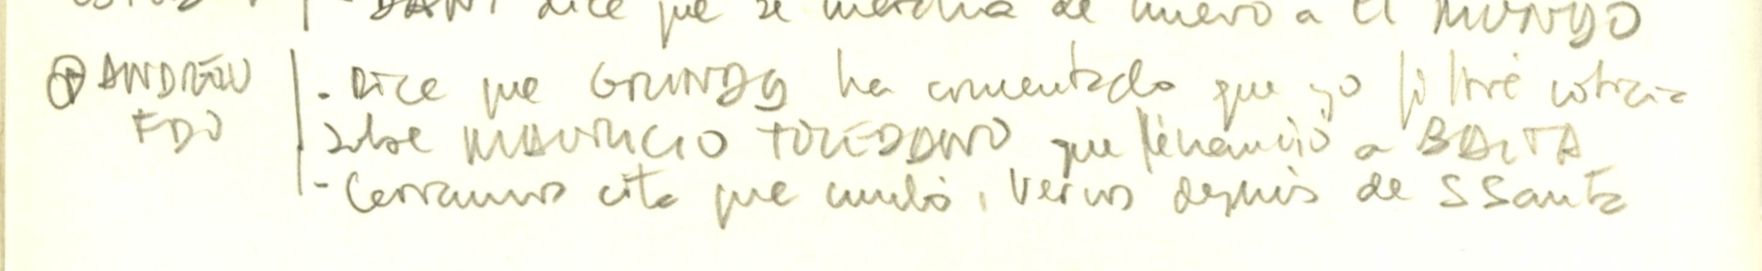 DANI dice que se marcha de nuevo a El MUNDO
ANDREU | - Dice que GRUNDY ha comentado que yo filtré noticia
FDO | sobre MAURICIO TOLEDANO que financió a BALTA
- Cerramos cita que anuló. Vernos después de S Santa